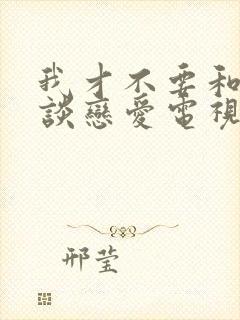 我才不要和
談戀愛電視
邢莹